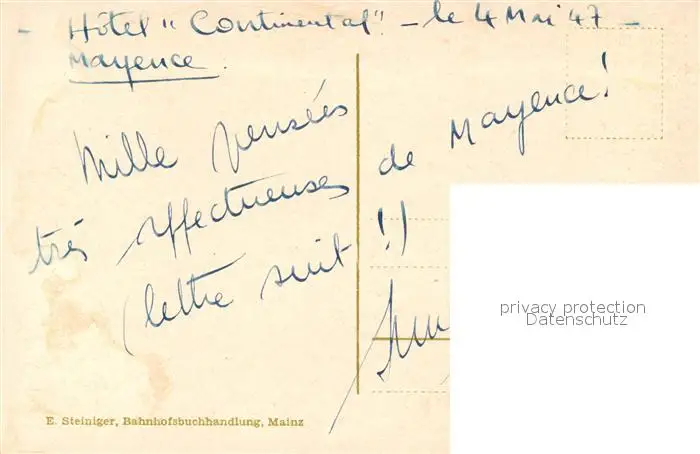 - Hôtel "Continental" - le 4 Mai 47 -
Mayence.
Mille pensées
très affectueuses de Mayence!
(lettre suit!)
privacy protection
Datenschutz
E. Steiniger, Bahnhofsbuchhandlung, Mainz